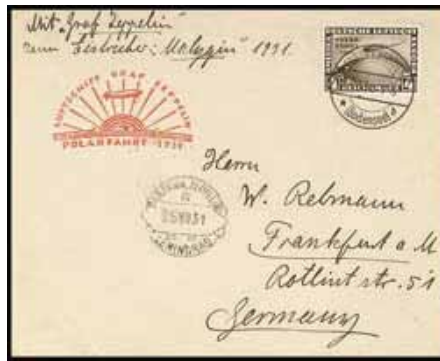 Mit „Graf Zeppelin“
zum Eisbrecher: „Malygin“ 1931.
LUFTSCHIFF GRAF ZEPPELIN
POLARFAHRT 1931
DEUTSCHE LUFTPOST
Bodensee
LENINGRAD
Herrn
W. Rebmann
Frankfurt a M
Rotlint str. 51
Germany